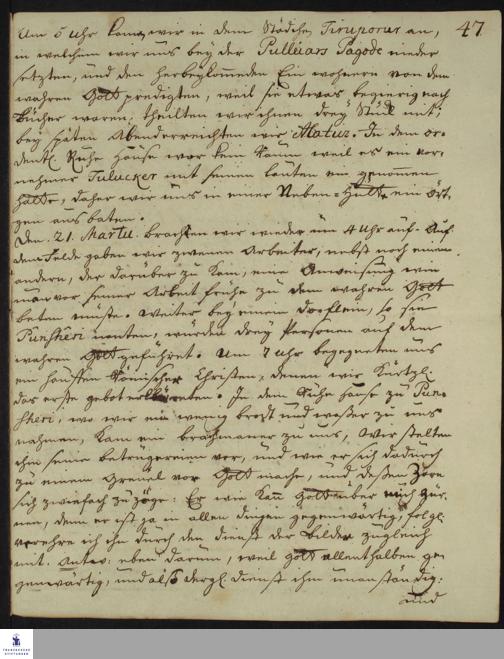 47
Um 5 Uhr kamen wir in dem Städchen Tiruporur an,
in welchem wir uns bey der Pulleiars Pagode nieder
setzten, und den herbeykommenden Einwohnern von dem
wahren Gott predigten, weil sie etwas begierig nach
Bücher waren, theilten wir ihnen drey Stück mit;
bey späten Abend erreichten wir Alatur. In dem or-
dentl. Ruhe Hause war kein Raum weil es ein vor-
nehmer Tulucker mit seinen Leuten eingenommen
hatte, daher wir uns in einer Neben-Hütte ein
gen aus baten.
Den 21. Martii. brachen wir wieder um 4 Uhr auf. Auf
dem Felde gaben wir zweenen Arbeiter, nebst noch einem
andern, der darüber zu kam, eine Anweisung wie
man vor seiner Arbeit frühe zu dem wahren Gott
beten müste. Weiter bey einem Dorflein, so sie
Punscheri nenten, wurden drey Personen auf den
wahren Gott geführet. Um 7 Uhr begegneten uns
ein hauffen Römischer Christen, denen wir kürtzl.
das erste gebot. In dem Ruhe Hause zu Pun-
scheri, wo wir ein wenig brodt und wasser zu uns
nahmen, kam ein brahmaner zu uns, Wir stelten
ihm seine betrügereien vor, und wie er sich dadurch
zu einem Greuel vor Gott mache, und deßen Zorn
sich zwiefach zu zöge: Er wie kan Gott über mich zür-
nen, denn er ist ja in allen dingen gegenwärtig, folgl.
verehre ich ihn durch den dienst der Bilder zugleich
mit. Antw: eben darum, weil Gott allenthalben ge-
genwärtig, und also dergl. dienst ihm unanständig;
und
FRANCKESCHE
STIFTUNGEN